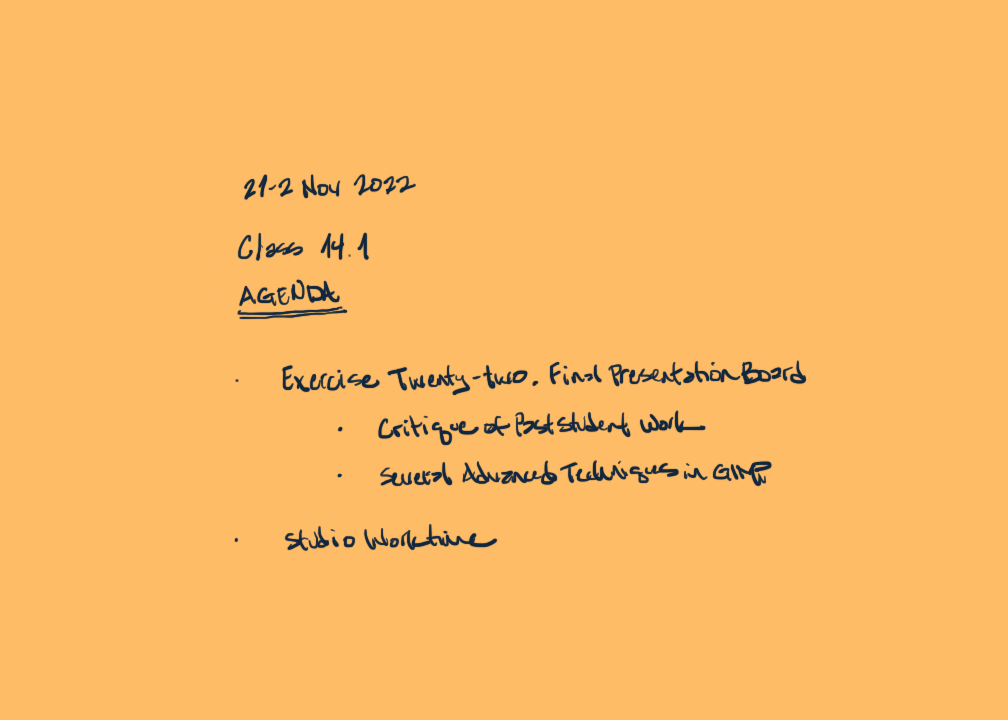 21-2 Nov 2022
Class 14.1
AGENDA
· Exercise Twenty-two. Final Presentation Board
· Critique of Past Student Work
· Several Advanced Techniques in GIMP
· Studio Worktime